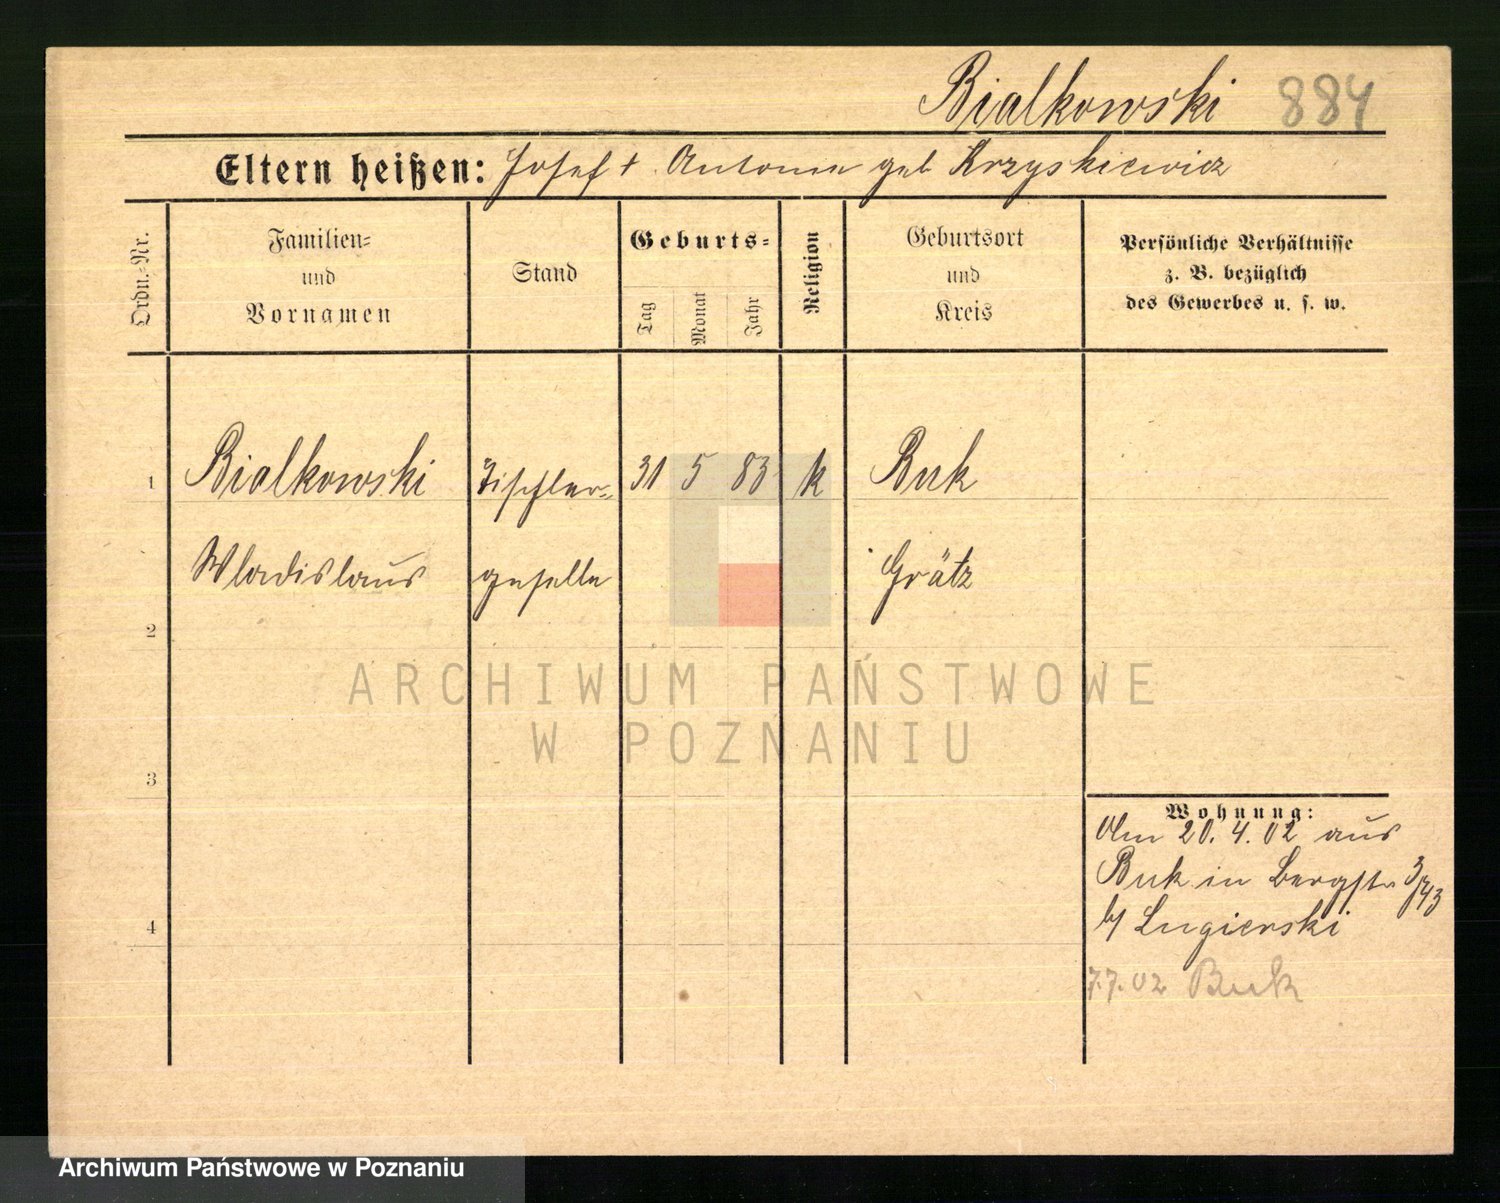 Bialkowski 884
Eltern heißen: Josef + Antonie geb Krzyskiewicz
Ordn.-Nr.
Familien-
und
Vornamen
Stand
Geburts-
Tag
Monat
Jahr
Religion
Geburtsort
und
Kreis
Persönliche Verhältnisse
z. B. bezüglich
des Gewerbes u. s. w.
1 Bialkowski Tischler- 31 5 83 k Buk
Wladislaus geselle Grätz
2
ARCHIWUM PAŃSTWOWE
W POZNANIU
3
Wohnung:
Am 20.4.02 aus
Buk in Bergstr
4 b/ Lugierski
7.7.02 Buk
Archiwum Państwowe w Poznaniu